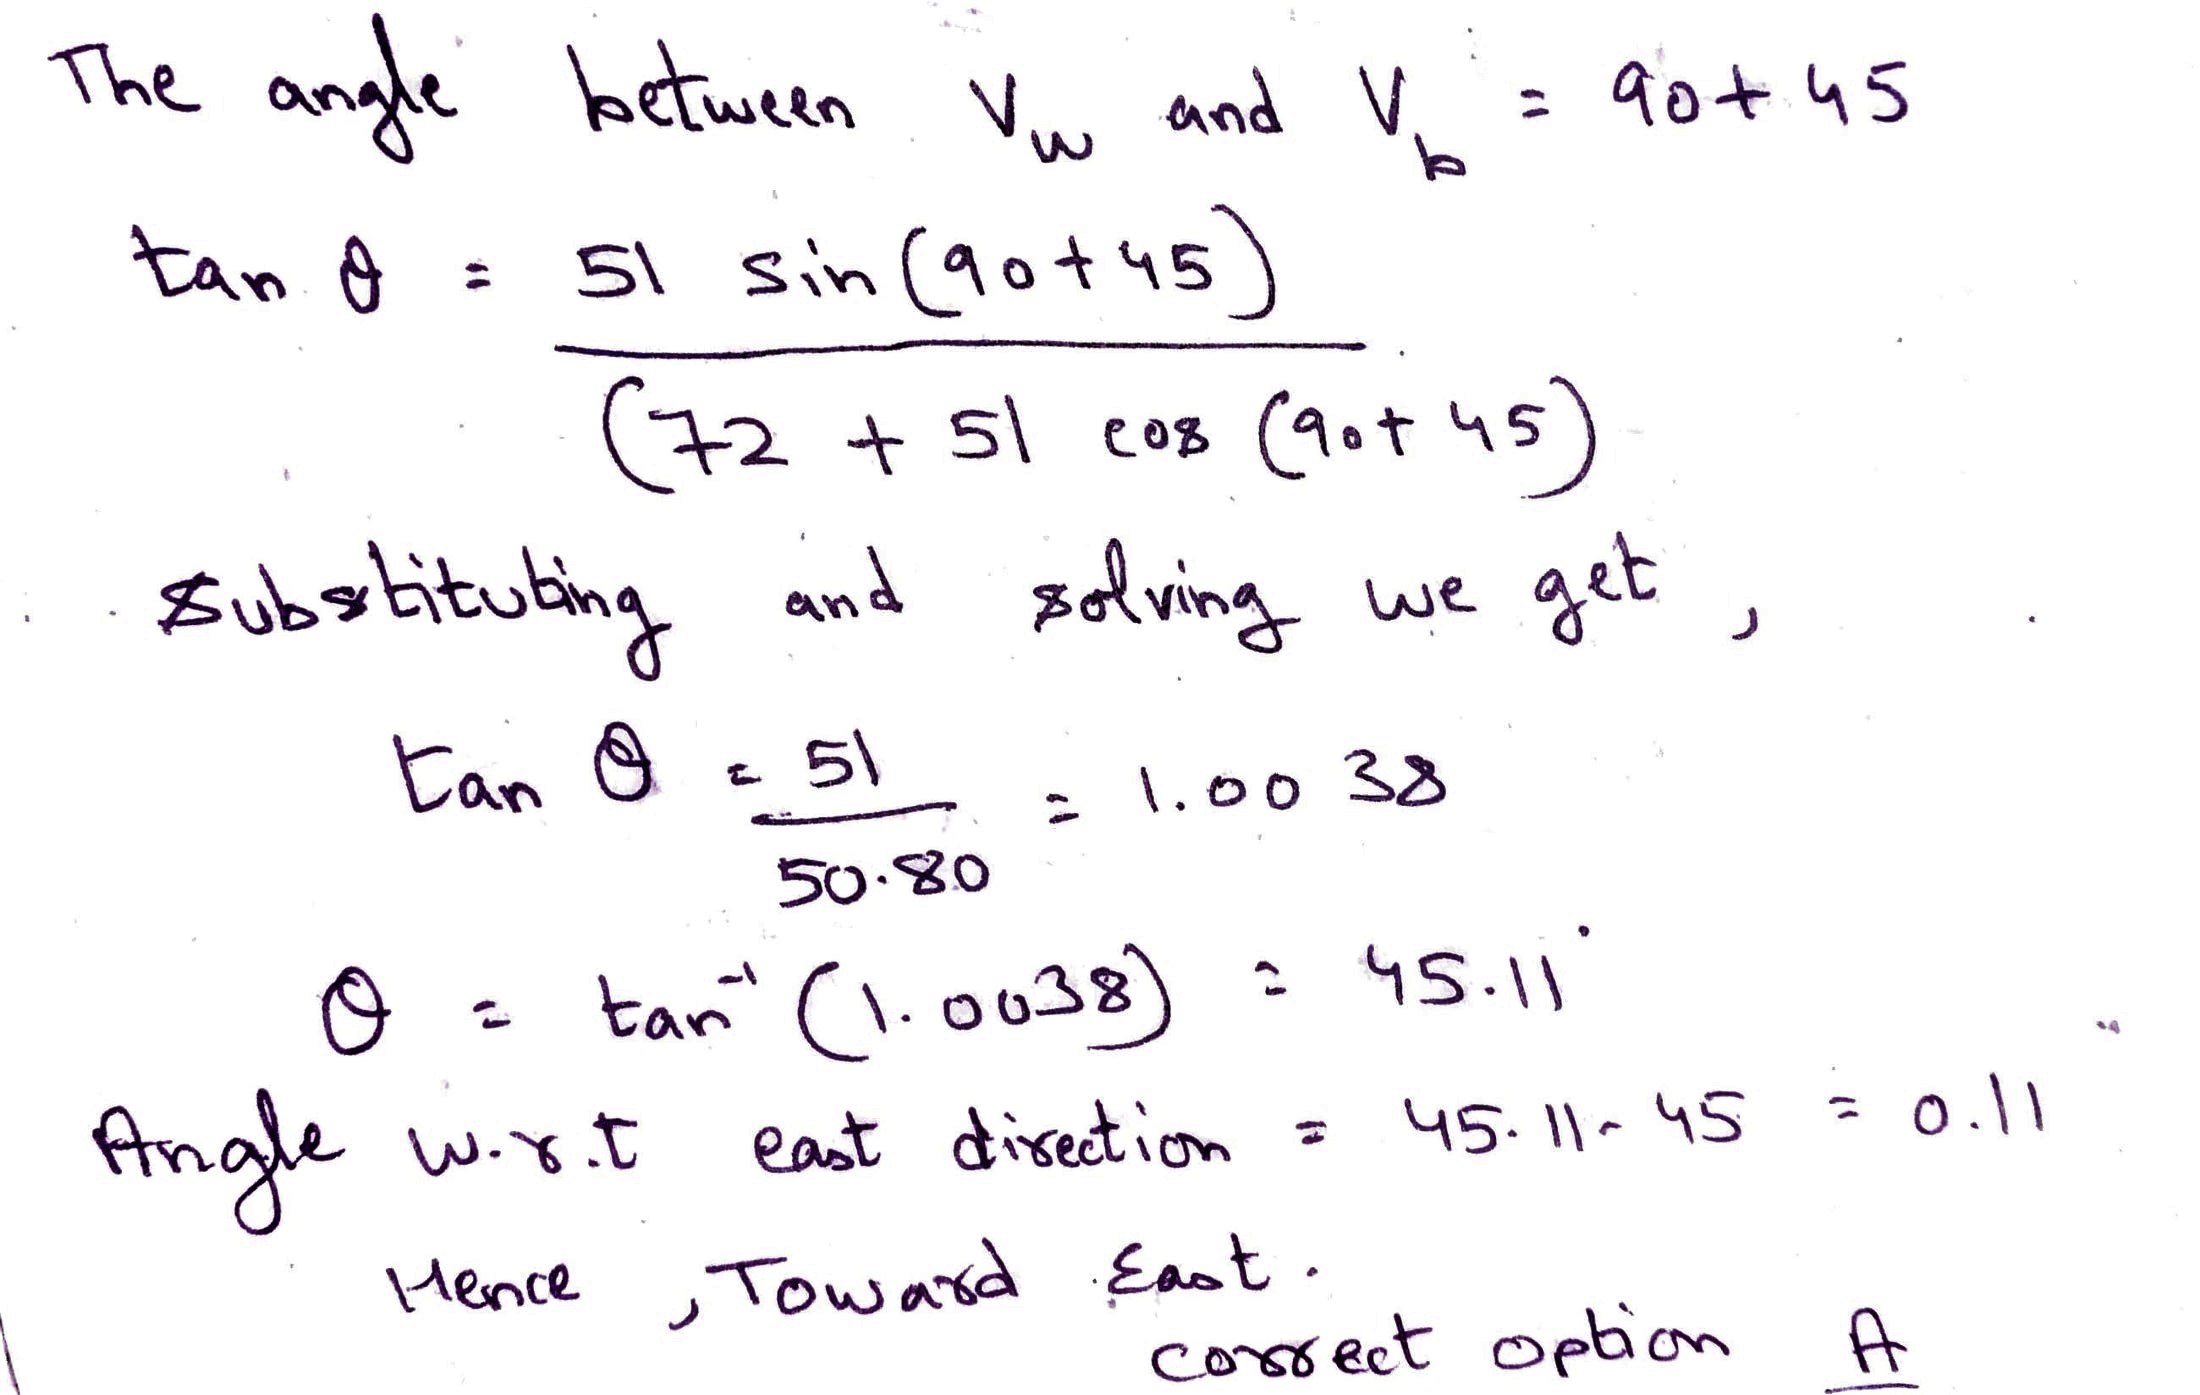 The angle between Vw and Vb = 90+45
tan θ = 51 sin (90+45)
(72 + 51 cos (90+45)
Substituting and solving we get,
tan θ = 51 = 1.0038
50.80
θ = tan⁻¹ (1.0038) = 45.11°
Angle w.r.t east direction = 45.11-45 = 0.11
Hence, Toward East.
correct option A